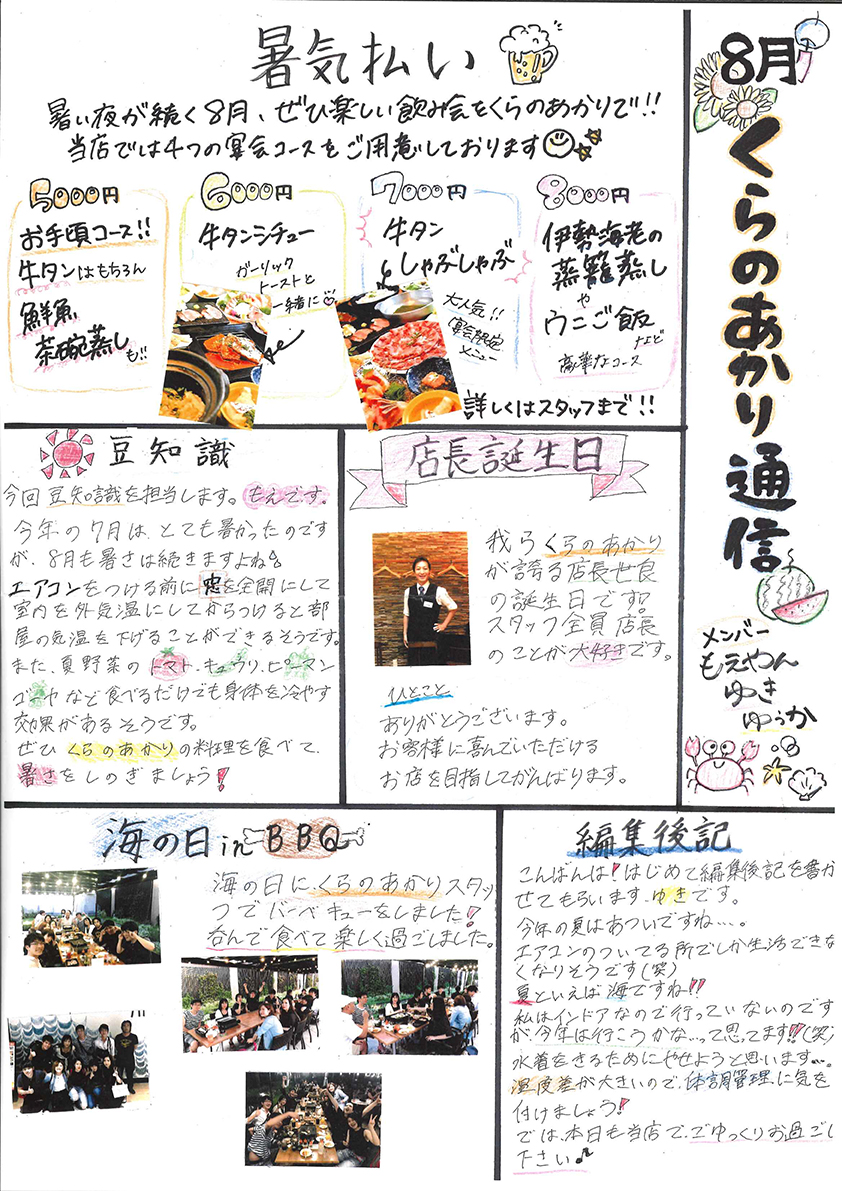 8月
くらのあかり通信
メンバー
もえやん
ゆき
ゆうか
暑気払い
暑い夜が続く8月、ぜひ楽しい飲み会をくらのあかりで!!
当店では4つの宴会コースをご用意しております
5000円
お手頃コース!!
牛タンはもちろん
鮮魚
茶碗蒸し
も!!
6000円
牛タンシチュー
ガーリック
トーストと
一緒に
7000円
牛タン
しゃぶしゃぶ
大人気!!
宴会限定
メニュー
8000円
伊勢海老の
蒸籠蒸し
や
ウニご飯
など
豪華なコース
詳しくはスタッフまで!!
豆知識
今回豆知識を担当します。もえです。
今年の7月は、とても暑かったのです
が、8月も暑さは続きますよね
エアコンをつける前に窓を全開にして
室内を外気温にしてからつけると部
屋の気温を下げることができるそうです。
また、夏野菜のトマト、キュウリ、ピーマン
ゴーヤなど食べるだけでも身体を冷やす
効果があるそうです。
ぜひくらのあかりの料理を食べて、
暑さをしのぎましょう!
店長誕生日
我らくらのあかり
が誇る店長世良
の誕生日です。
スタッフ全員店長
のことが大好きです。
ひとこと
ありがとうございます。
お客様に喜んでいただける
お店を目指してがんばります。
海の日in BBQ
海の日に、くらのあかりスタッ
フでバーベキューをしました!
呑んで食べて楽しく過ごしました。
編集後記
こんばんは!はじめて編集後記を書か
せてもらいます、ゆきです。
今年の夏はあついですね...。
エアコンのついてる所でしか生活できな
くなりそうです(笑)
夏といえば海ですね!!
私はインドアなので行っていないのです
が、今年は行こうかな...って思ってます!!(笑)
水着をきるためにやせようと思います...。
温度差が大きいので、体調管理に気を
付けましょう!
では、本日も当店で、ごゆっくりお過ごし
下さい♪